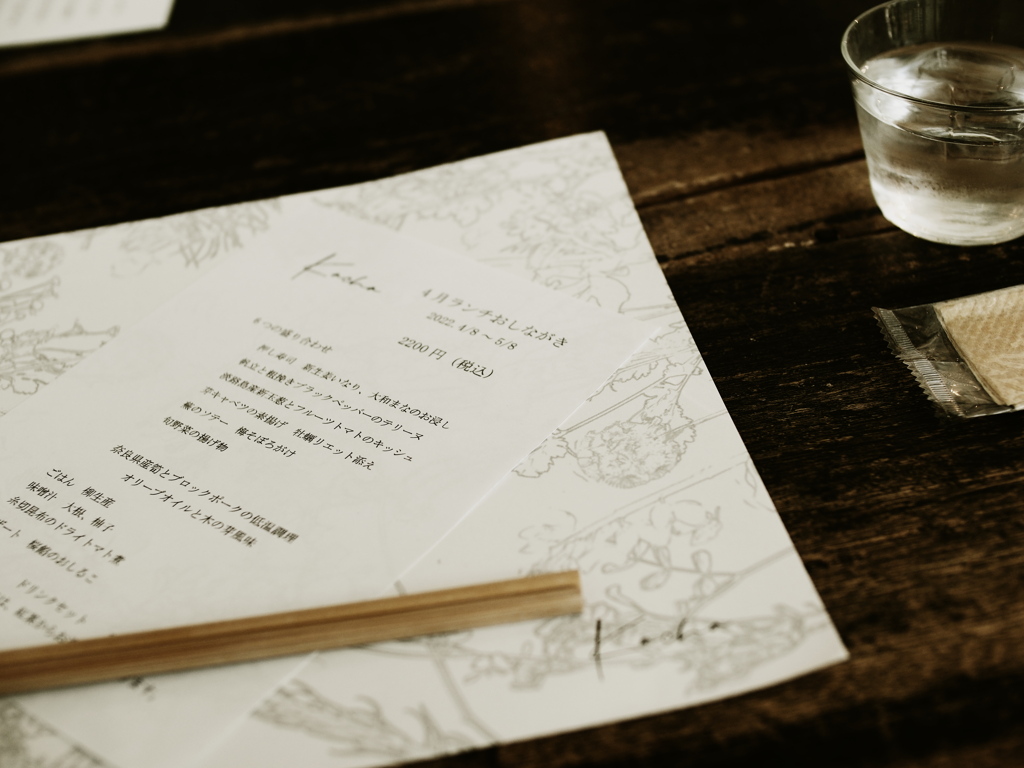 Kocha
4月ランチおしながき
2022 4/8～5/8
2200円（税込）
6つの盛り合わせ
押し寿司 新生姜いなり、大和まなのお浸し
帆立と粗挽きブラックペッパーのテリーヌ
淡路島産新玉葱とフルーツトマトのキッシュ
芽キャベツの素揚げ 牡蠣リエット添え
蕪のソテー 梅そぼろがけ
旬野菜の揚げ物
奈良県産筍とブロックポークの低温調理
オリーブオイルと木の芽風味
ごはん 柳生産
味噌汁 大根、柚子
糸切昆布のドライトマト煮
桜餡のおしるこ
ドリンクセット
Kocha